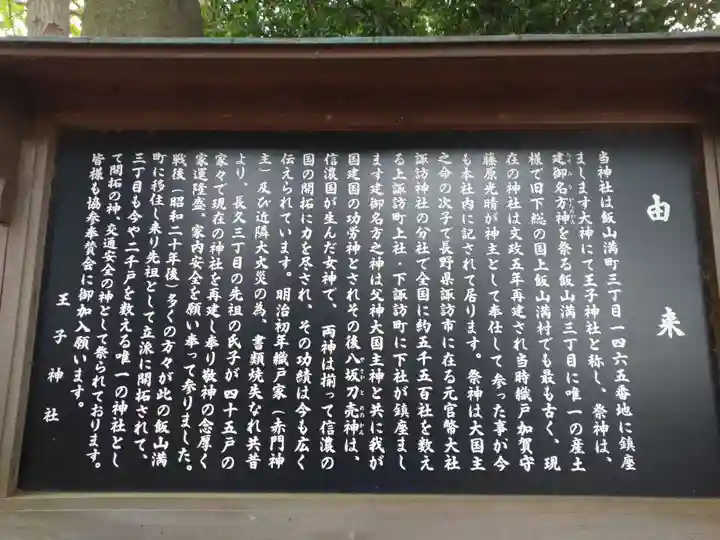 由来
当神社は飯山満町三丁目一四六五番地に鎮座
まします大神にて王子神社と称し、祭神は、
建御名方神を祭る飯山満三丁目に唯一の産土
様で旧下総の国上飯山満村でも最も古く、現
在の神社は文政五年再建され当時織戸加賀守
藤原光晴が神主として奉仕して参った事が今
も本社内に記されて居ります。祭神は大国主
之命の次子で長野県諏訪市に在る元官幣大社
諏訪神社の分社で全国に約五千五百社を数え
る上諏訪町上社・下諏訪町に下社が鎮座まし
ます建御名方之神は父神大国主神と共に我が
国建国の功労神とされその後八坂刀売神は、
信濃国が生んだ女神で、両神は揃って信濃の
国の開拓に力を尽され、その功績は今も広く
伝えられています。明治初年織戸家（赤門神
主）及び近隣大火災の為、書類焼失なれ共昔
より、長久三丁目の先祖の氏子が四十五戸の
家々で現在の神社を再建し奉り敬神の念厚く
家運隆盛、家内安全を願い奉って参りました。
戦後（昭和二十年後）多くの方々が此の飯山満
町に移住し来り先祖として立派に開拓されて、
三丁目も今や二千戸を数える唯一の神社とし
て開拓の神、交通安全の神として祭られております。
皆様も協参奉賛会に御加入願います。
王子神社